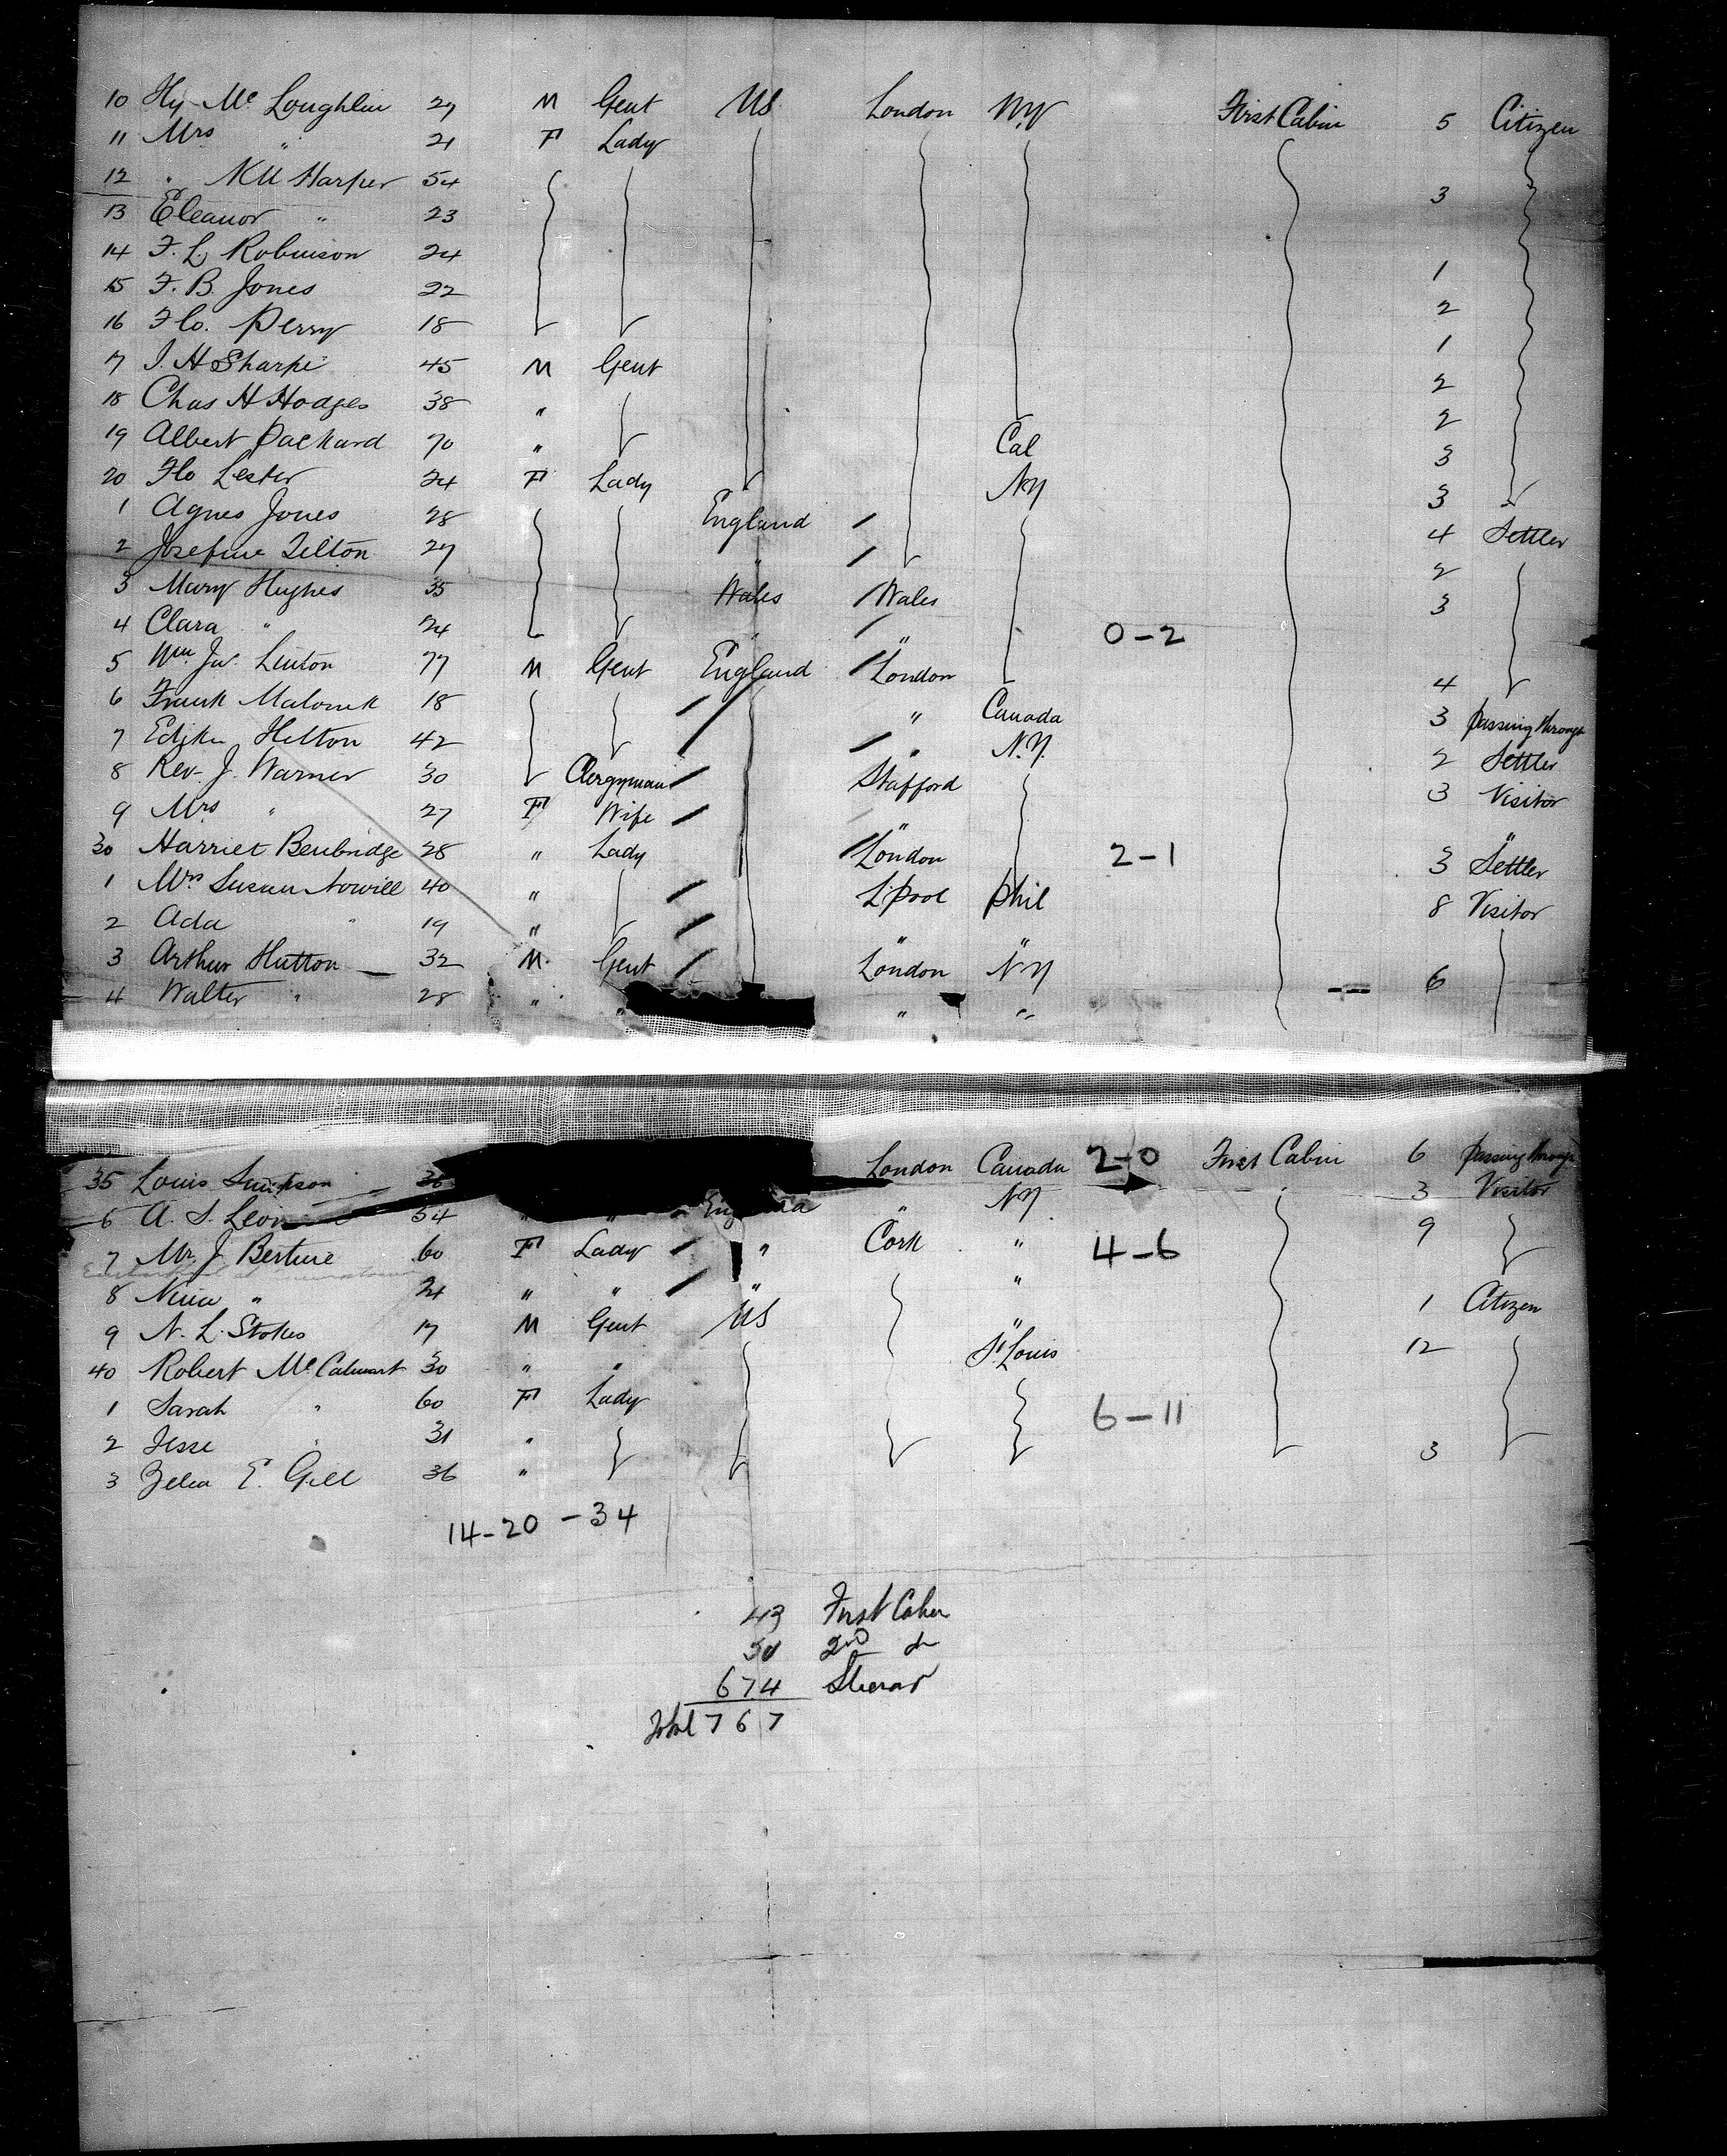 10 Hy Mc Loughlin 27 M Gent US London NY First Cabin 5 Citizen
11 Mrs " 21 F Lady
12 " Harper 54 3
13 Eleanor " 23
14 F. L. Robinson 24 1
15 F. B. Jones 22 2
16 Flo. Perry 18 1
7 J. H Sharpe 45 M Gent 2
18 Chas H Hodges 38 " 2
19 Albert Packard 70 " Cal 3
20 Flo Lester 24 F Lady NY 3
1 Agnes Jones 28 England 4 Settler
2 Josefine Telton 27 " 2
3 Mary Hughes 35 Wales Wales 3
4 Clara " 24 " " 0-2
5 Wm Jas. Linton 77 M Gent England London 4
6 Frank 18 " Canada 3 passing through
7 Hilton 42 " N.Y. 2 Settler
8 Rev. J. Warner 30 Clergyman Stafford 3 Visitor
9 Mrs " 27 F Wife " "
30 Harriet Benbridge 28 " Lady London 2-1 3 Settler
1 Mrs Susan Nowill 40 " L'pool Phil 8 Visitor
2 Ada " 19 " " "
3 Arthur Hutton 32 M. Gent London NY 6
4 Walter " 28 " " " "
35 Louis Simpson 36 London Canada 2-0 First Cabin 6 passing through
6 A. S. Leon 54 " " England " NY 3 Visitor
7 J. Berture 60 F Lady " Cork " 4-6 9
8 Nina " 24 " " " "
9 N. L. Stokes 17 M Gent US " 1 Citizen
40 Robert 30 " " St Louis 12
1 Sarah " 60 F Lady
2 Jesse " 31 " 6-11
3 Zelia E. Gill 36 " 3
14-20-34
43 First Cabin
50 2nd do
674 Steerage
Total 767